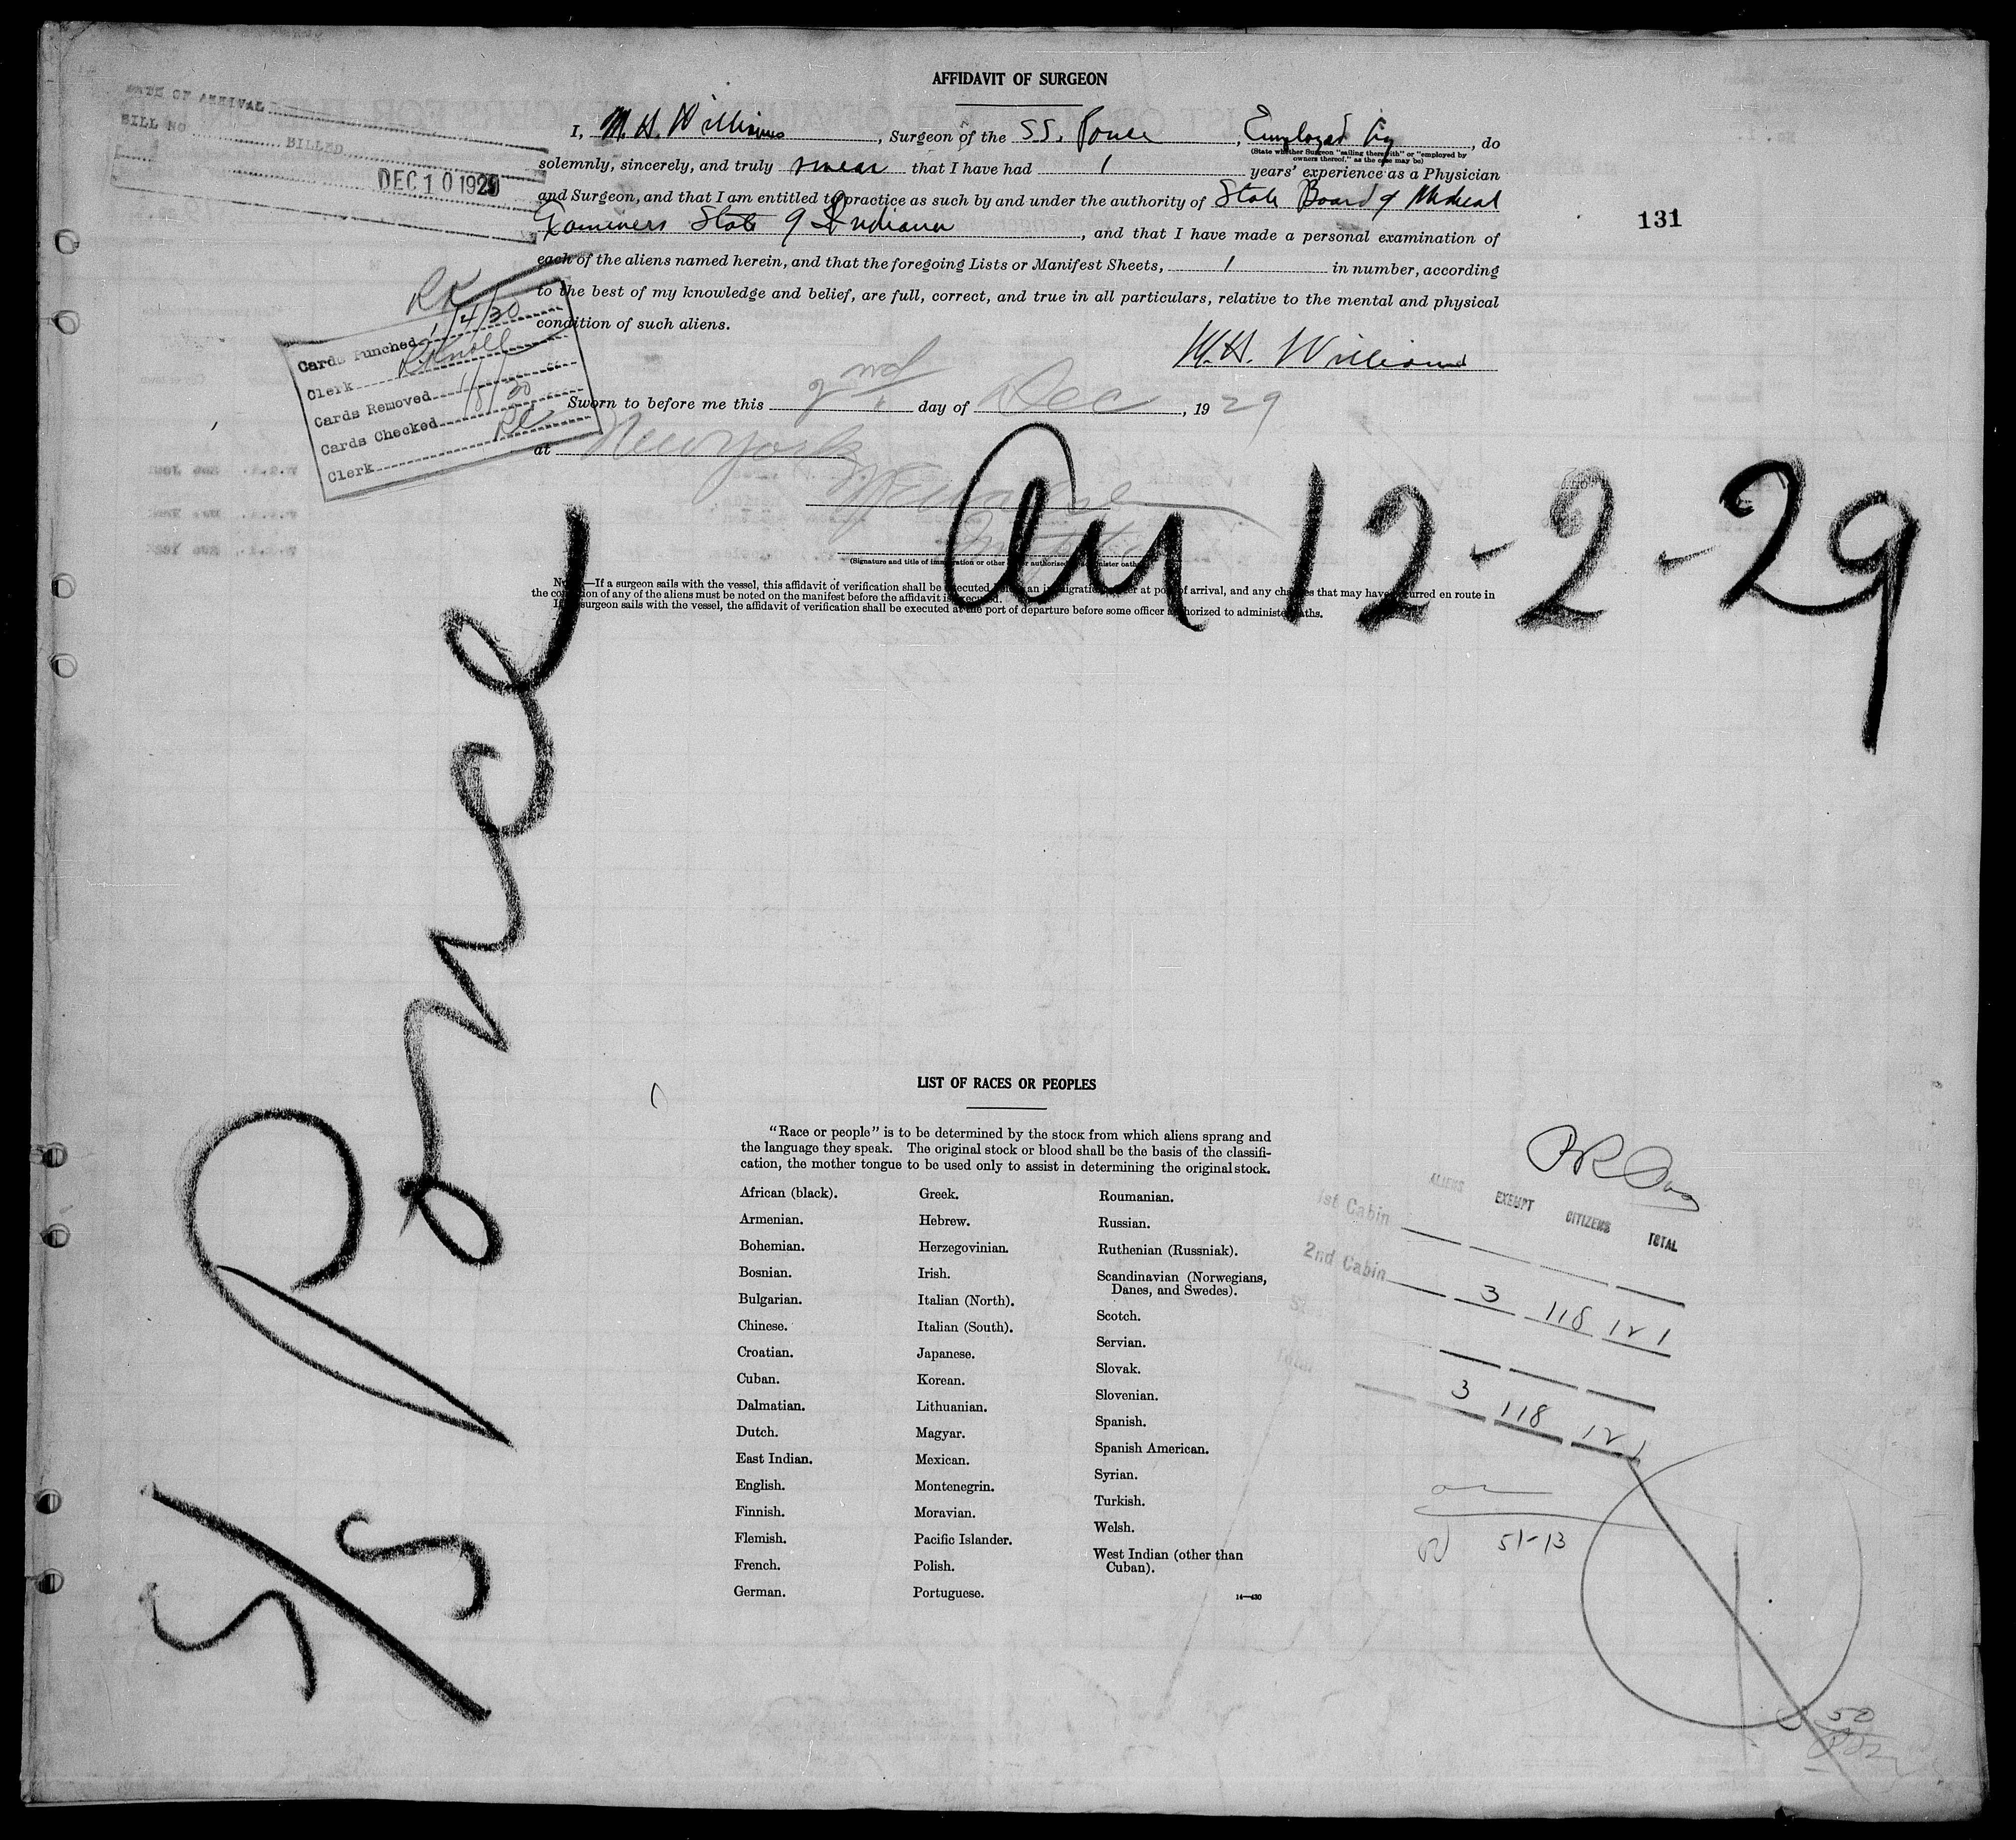 AFFIDAVIT OF SURGEON
I, M. H. Williams, Surgeon of the SS. Ponce, Employed by, do
(State whether Surgeon "sailing therewith" or "employed by
owners thereof," as the case may be)
solemnly, sincerely, and truly swear that I have had 1 years' experience as a Physician
and Surgeon, and that I am entitled to practice as such by and under the authority of State Board of Medical
Examiners State of Indiana, and that I have made a personal examination of
each of the aliens named herein, and that the foregoing Lists or Manifest Sheets, 1 in number, according
to the best of my knowledge and belief, are full, correct, and true in all particulars, relative to the mental and physical
condition of such aliens.
M. H. Williams
Sworn to before me this 2nd day of Dec, 1929
at New York
(Signature and title of immigration or other officer authorized to administer oaths)
NOTE.—If a surgeon sails with the vessel, this affidavit of verification shall be executed before an immigration officer at port of arrival, and any changes that may have occurred en route in
the condition of any of the aliens must be noted on the manifest before the affidavit is executed.
surgeon sails with the vessel, the affidavit of verification shall be executed at the port of departure before some officer authorized to administer oaths.
DATE OF ARRIVAL
BILL NO BILLED
DEC 10 1929
131
Cards Punched 1/4/30
Clerk
Cards Removed
Cards Checked
Clerk
12-2-29
S/S Ponce
LIST OF RACES OR PEOPLES
"Race or people" is to be determined by the stock from which aliens sprang and
the language they speak. The original stock or blood shall be the basis of the classifi-
cation, the mother tongue to be used only to assist in determining the original stock.
African (black).
Armenian.
Bohemian.
Bosnian.
Bulgarian.
Chinese.
Croatian.
Cuban.
Dalmatian.
Dutch.
East Indian.
English.
Finnish.
Flemish.
French.
German.
Greek.
Hebrew.
Herzegovinian.
Irish.
Italian (North).
Italian (South).
Japanese.
Korean.
Lithuanian.
Magyar.
Mexican.
Montenegrin.
Moravian.
Pacific Islander.
Polish.
Portuguese.
Roumanian.
Russian.
Ruthenian (Russniak).
Scandinavian (Norwegians,
Danes, and Swedes).
Scotch.
Servian.
Slovak.
Slovenian.
Spanish.
Spanish American.
Syrian.
Turkish.
Welsh.
West Indian (other than
Cuban).
14—430
ALIENS EXEMPT CITIZENS TOTAL
1st Cabin
2nd Cabin 3 118 121
Total 3 118 121
51-13
50